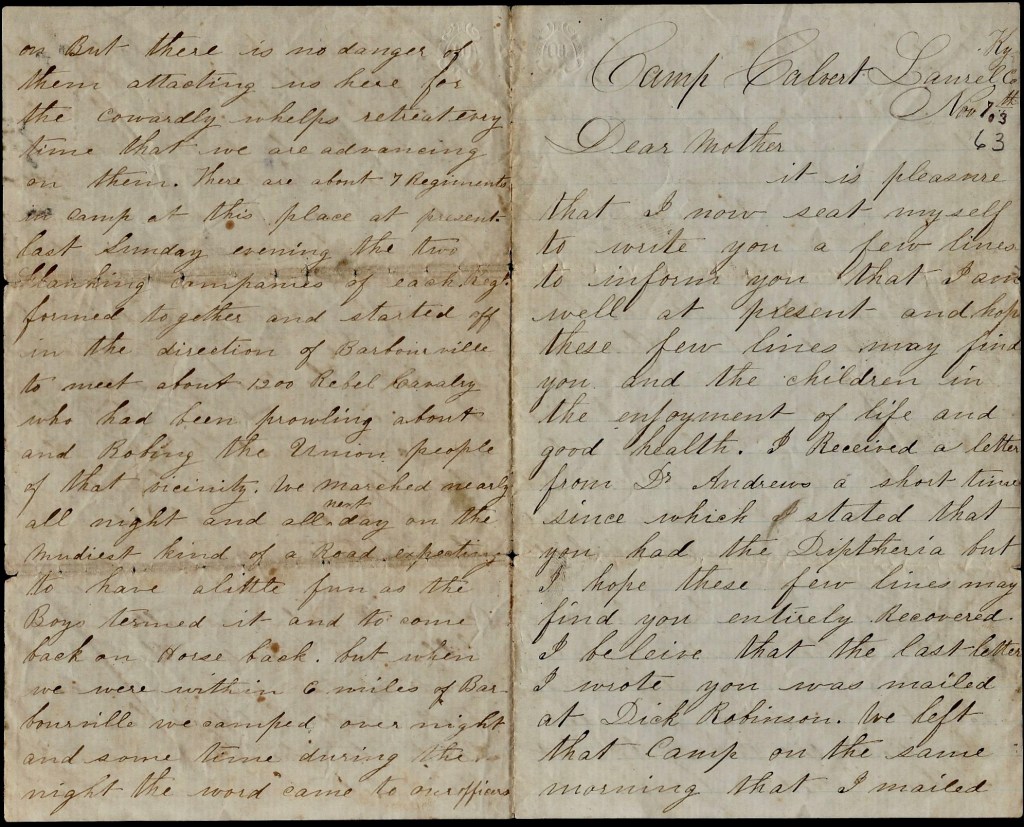 Camp Calvert Laurel Co Ky
Nov 7th
63
Dear Mother
it is pleasure
that I now seat myself
to write you a few lines
to inform you that I am
well at present and hope
these few lines may find
you and the children in
the enjoyment of life and
good health. I Received a letter
from Dr Andrews a short time
since which I stated that
you had the Diptheria but
I hope these few lines may
find you entirely Recovered.
I beleive that the last letter
I wrote you was mailed
at Dick Robinson. We left
that Camp on the same
morning that I mailed
on But there is no danger of
them attacting us here for
the cowardly whelps retreat every
time that we are advancing
on them. There are about 7 Regiments
in camp at this place at present
last Sunday evening the two
flanking companies of each Regt
formed together and started off
in the direction of Barbourville
to meet about 1200 Rebel Cavalry
who had been prowling about
and Robing the Union people
of that vicinity. We marched nearly
all night and all next day on the
mudiest kind of a Road expecting
to have alittle fun as the
Boys termed it and to come
back on Horse back. but when
we were within 6 miles of Bar-
bourville we camped over night
and some time during the
night the word came to our officers